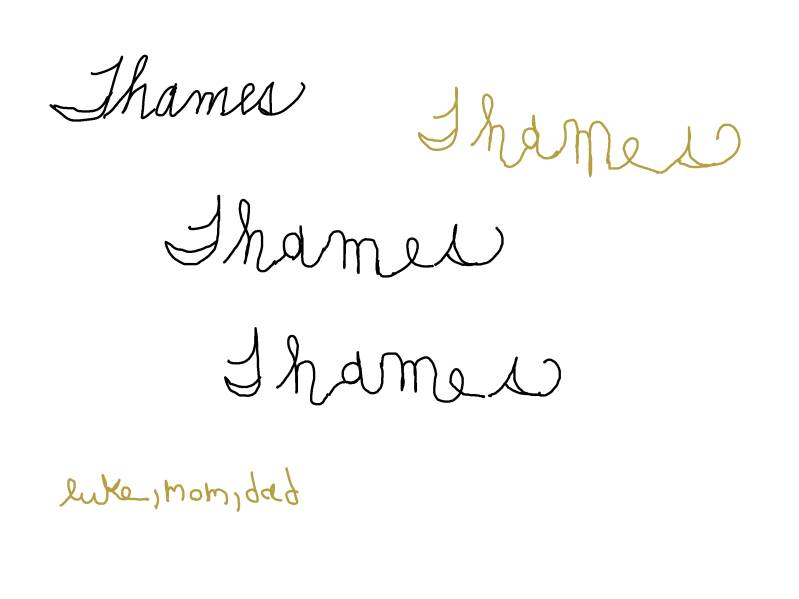 Thames
Thames
Thames
Thames
luke, mom, dad